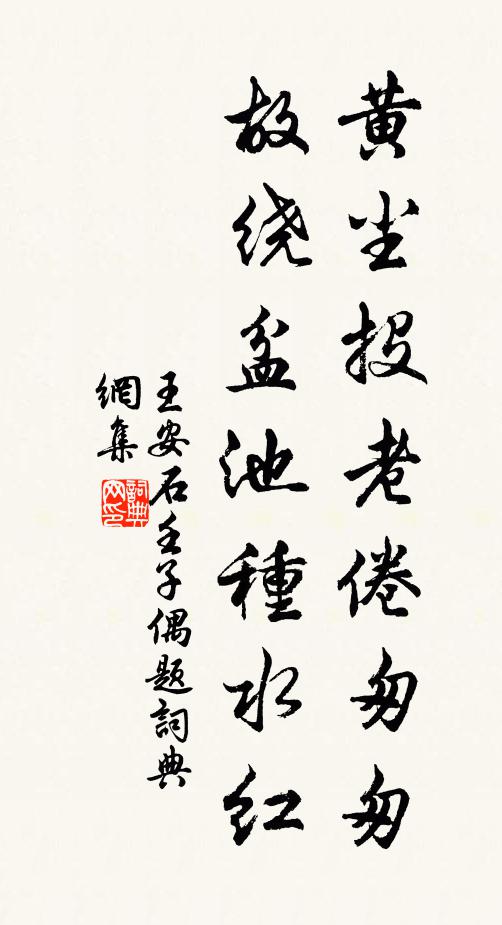 黄尘投老倦匆匆
故绕盆池種水红
王安石壬子偶题詞典
網集
詞典
网印